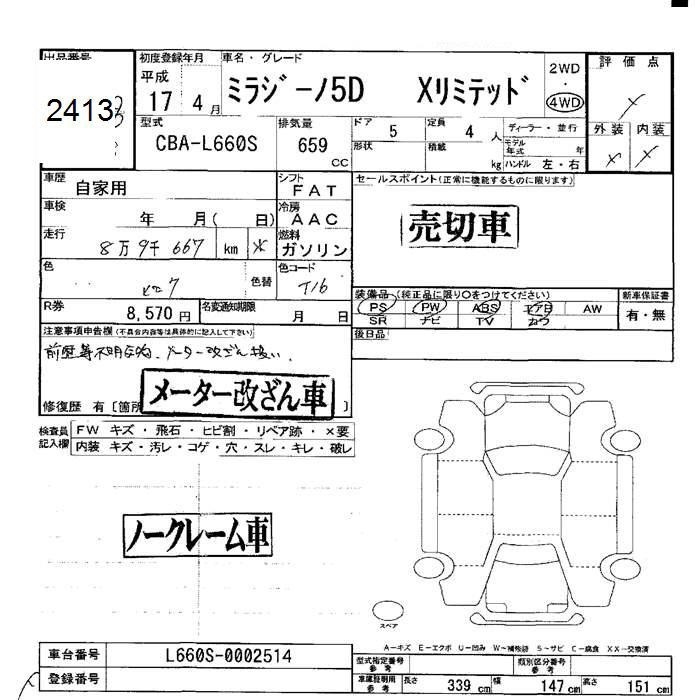 出品番号
2413
初度登録年月
平成
17 4 月
車名・グレード
ミラジーノ5D Xリミテッド
2WD
・
4WD
評価点
外装 内装
型式
CBA-L660S
排気量
659
CC
ドア 5
定員 4 人
形状
積載 kg
ディーラー・並行
モデル年式 年
ハンドル 左・右
車歴
自家用
シフト
FAT
セールスポイント(正常に機能するものに限ります)
車検
年 月( 日)
冷房
AAC
売切車
走行
8万9千667 km
燃料
ガソリン
色
色替
色コード
T16
装備品 (純正品に限り○をつけてください)
PS PW ABS エアB AW
SR ナビ TV カワ
新車保証書
有・無
R券
8,570 円
名変通知期限
月 日
後日品
注意事項申告欄(不具合内容等は具体的に記入して下さい)
前歴等不明点有、メーター改ざん扱い、
メーター改ざん車
修復歴 有 [箇所 ]
検査員記入欄
FW キズ・飛石・ヒビ割・リペア跡・×要
内装 キズ・汚レ・コゲ・穴・スレ・キレ・破レ
ノークレーム車
スペア
A-キズ E-エクボ U-凹み W-補修跡 S-サビ C-腐食 XX-交換済
車台番号
L660S-0002514
登録番号
型式指定番号 参考
類別区分番号 参考
車庫証明用 参考
長さ 339 cm
幅 147 cm
高さ 151 cm